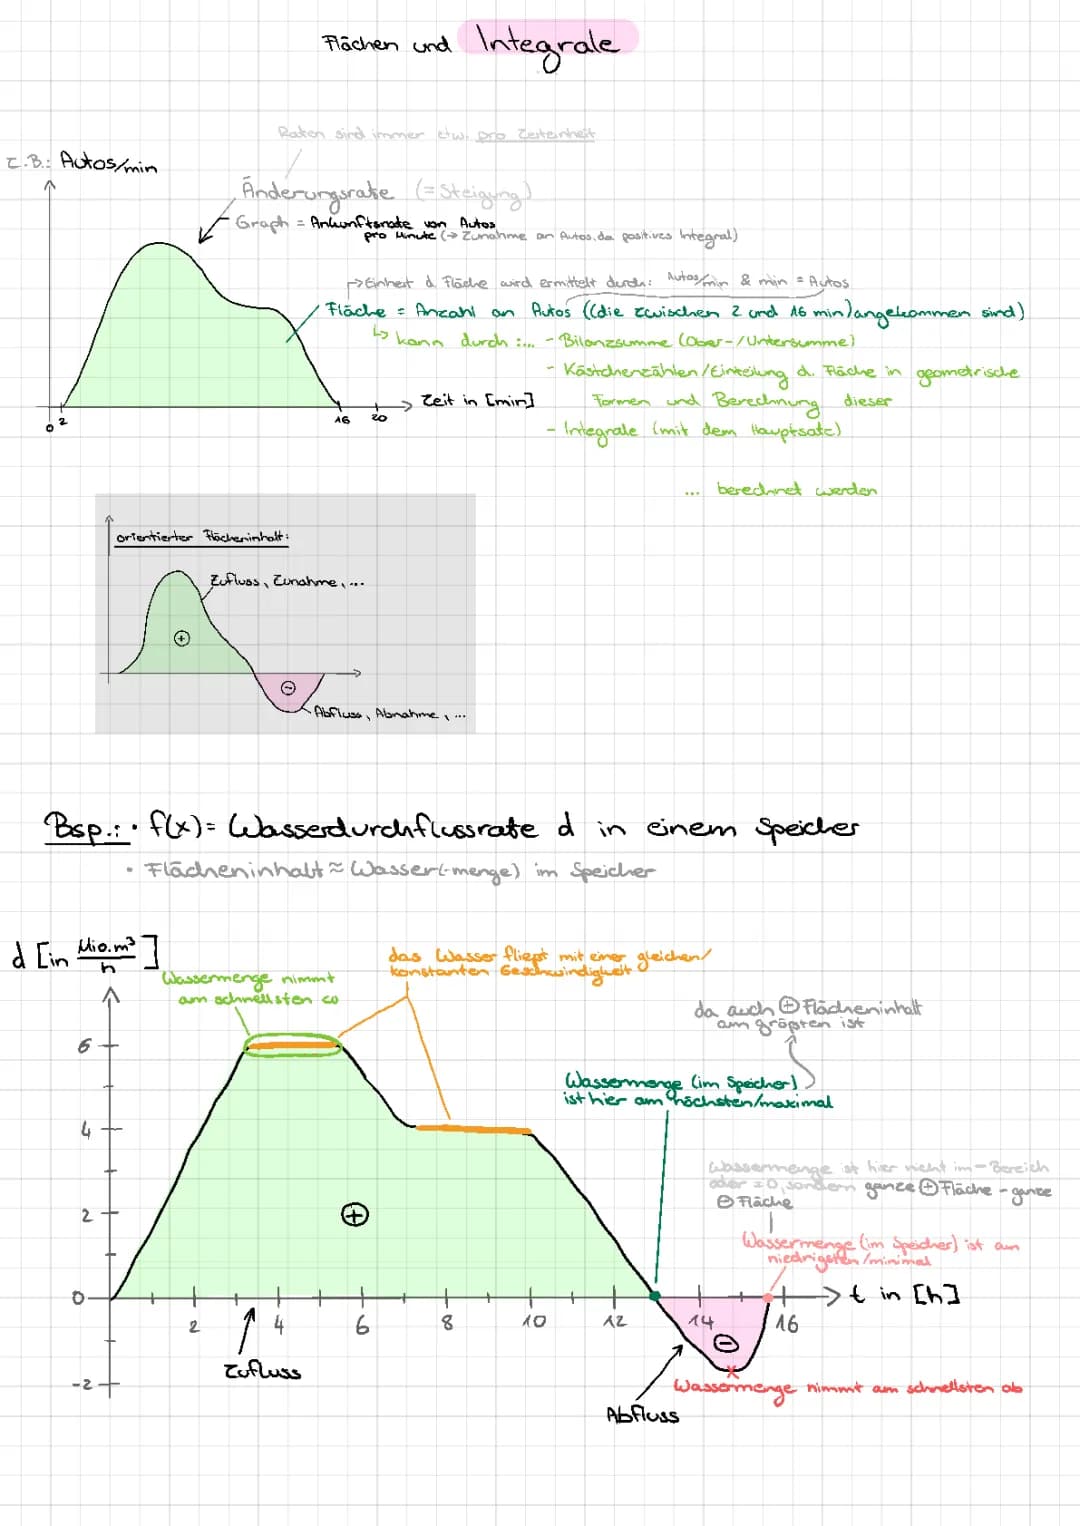 Flächen und Integrale
Raten sind immer etw. pro Zeiteinheit
z.B.: Autos/min
Änderungsrate (= Steigung)
Graph = Ankunftsrate von Autos
pro Minute (→ Zunahme an Autos, da positives Integral)
→ Einheit d. Fläche wird ermittelt durch: Autos/min & min = Autos
Fläche = Anzahl an Autos ((die zwischen 2 und 16 min) angekommen sind)
↳ kann durch :... - Bilanzsumme (Ober-/Untersumme)
- Kästchenzählen/Einteilung d. Fläche in geometrische
Formen und Berechnung dieser
- Integrale (mit dem Hauptsatz)
... berechnet werden
Zeit in [min]
0 2 16 20
orientierter Flächeninhalt:
Zufluss, Zunahme, ...
+
-
Abfluss, Abnahme, ...
Bsp.: • f(x) = Wasserdurchflussrate d in einem Speicher
• Flächeninhalt ≈ Wasser(-menge) im Speicher
d [in Mio.m³/h]
das Wasser fließt mit einer gleichen/
konstanten Geschwindigkeit
Wassermenge nimmt
am schnellsten zu
da auch ⊕ Flächeninhalt
am größten ist
6
Wassermenge (im Speicher)
ist hier am höchsten/maximal
4
Wassermenge ist hier nicht im - Bereich
oder =0, sondern ganze ⊕ Fläche - ganze
⊖ Fläche
2
+
Wassermenge (im Speicher) ist am
niedrigsten/minimal
0
t in [h]
2 4 6 8 10 12 14 16
-
Zufluss
-2
Wassermenge nimmt am schnellsten ab
Abfluss